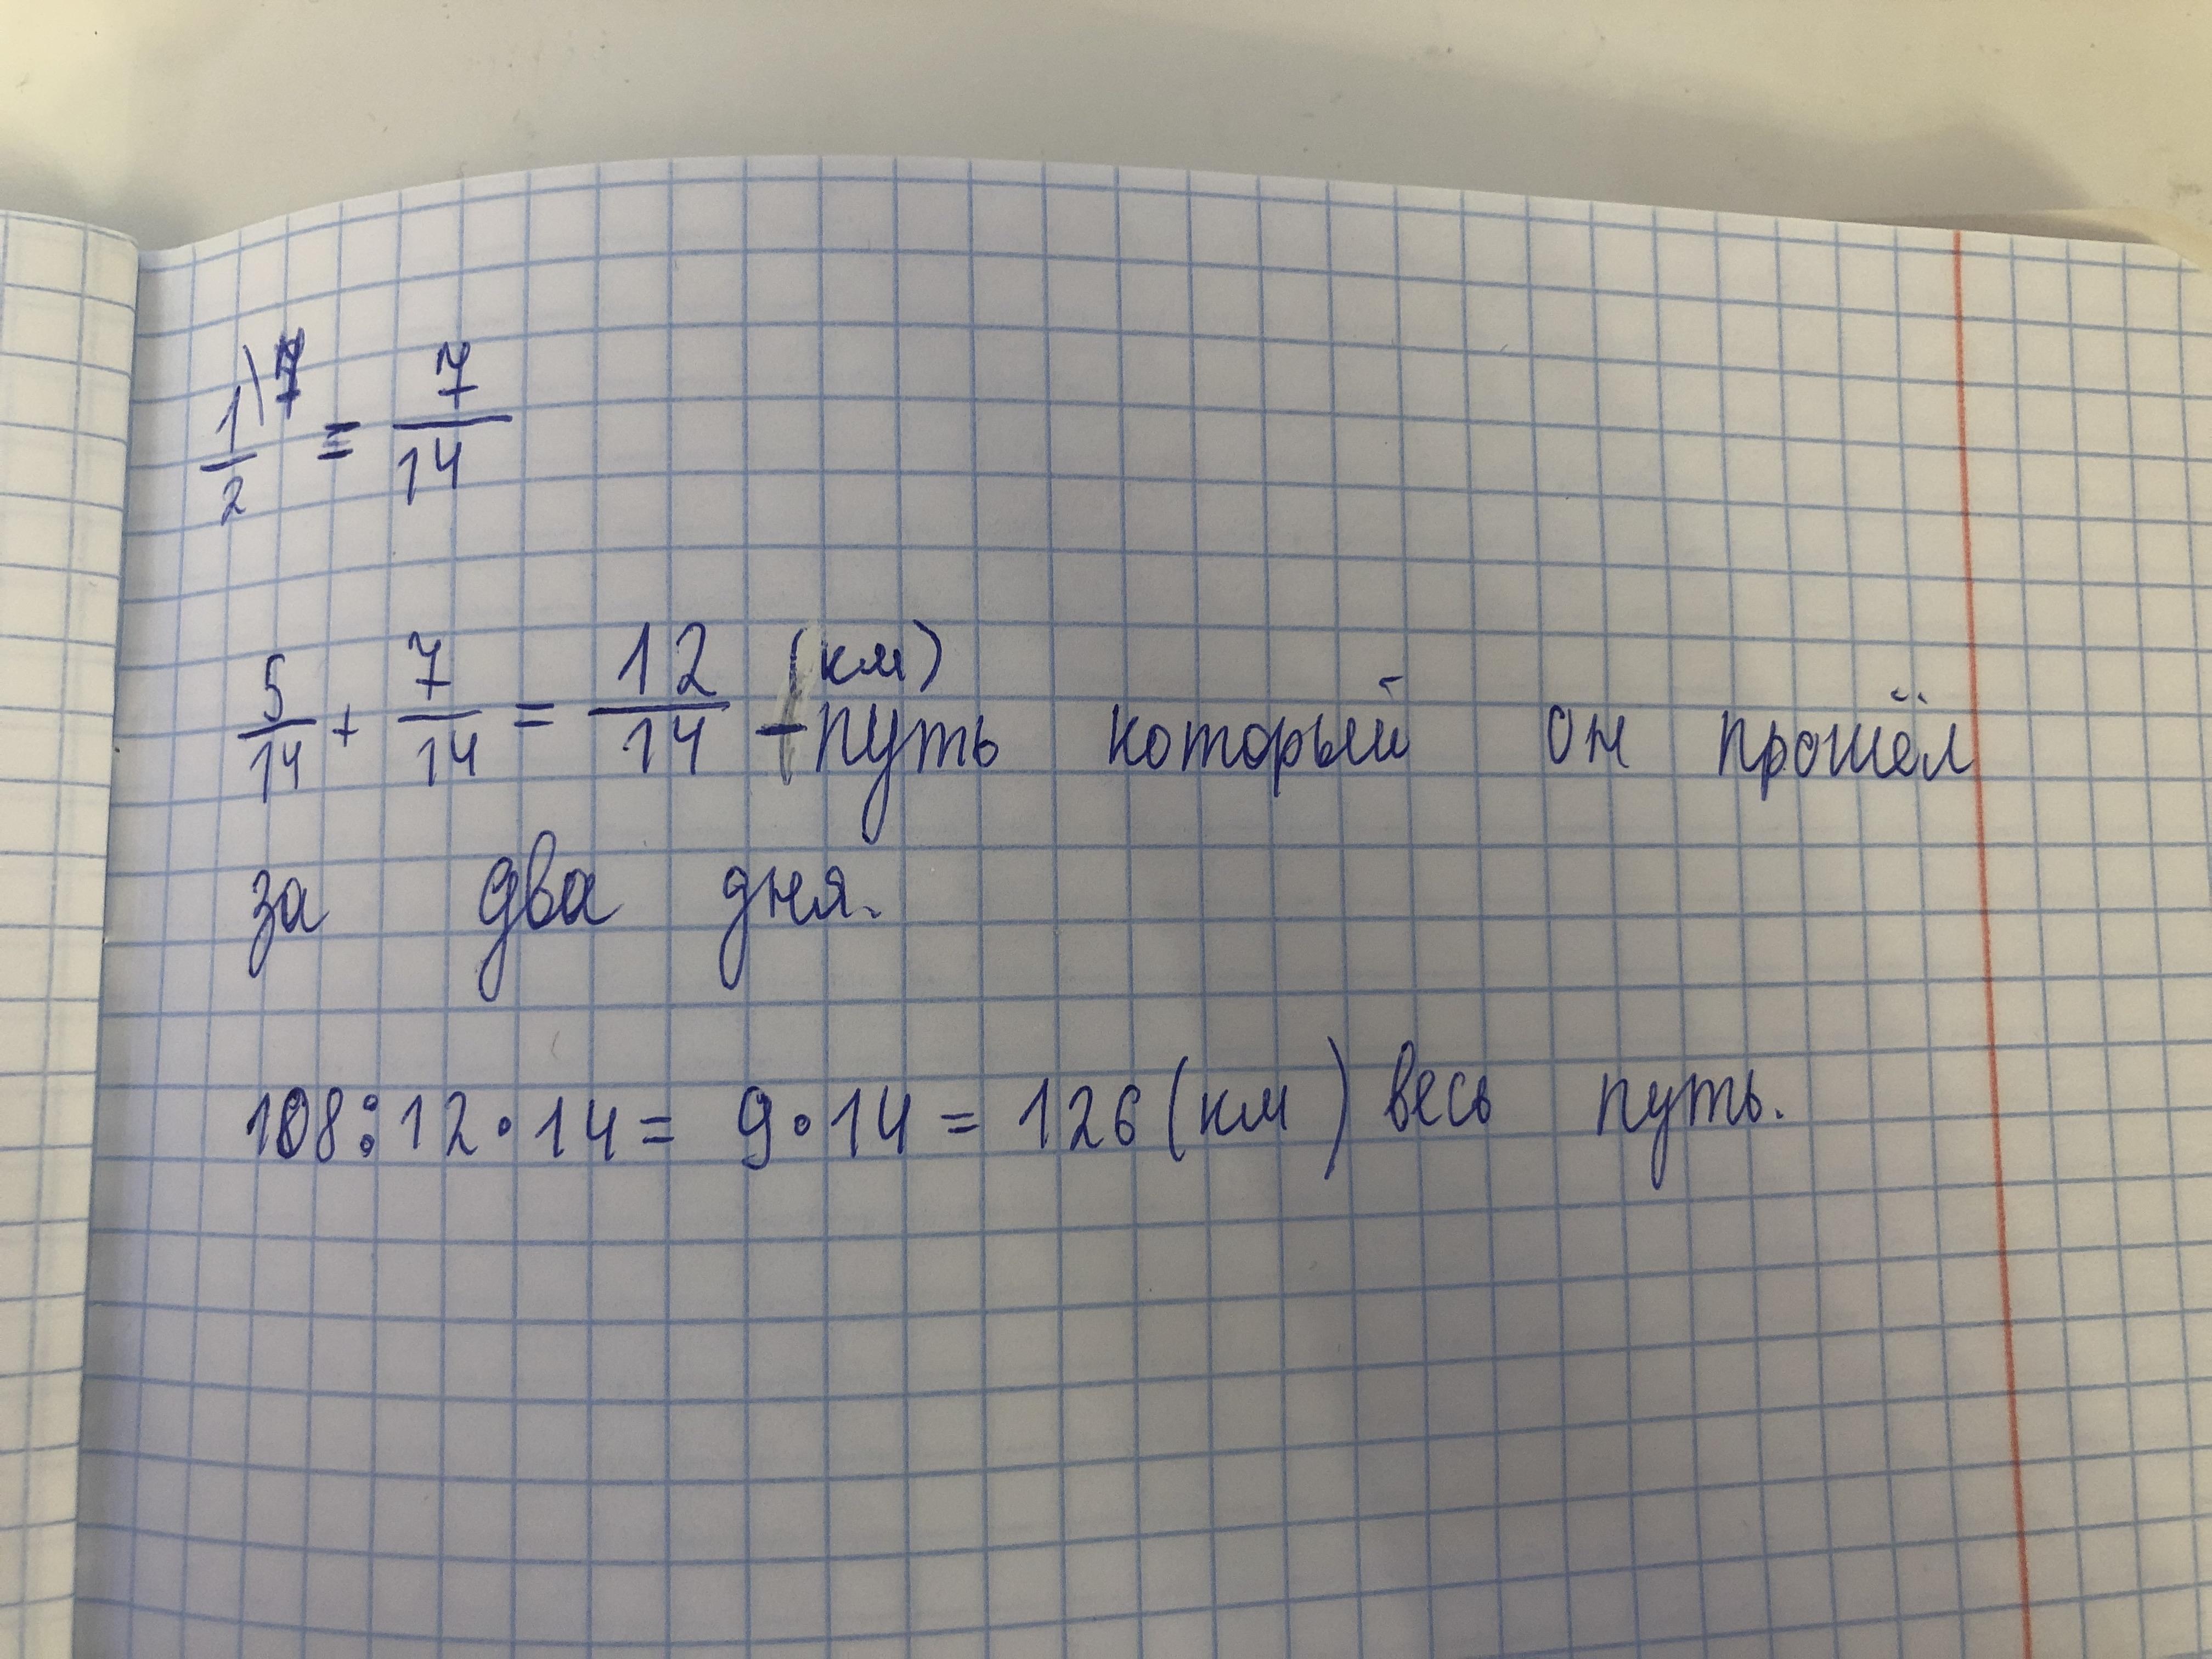 1\7/2 = 7/14
5/14 + 7/14 = 12/14 (км) – путь который он прошёл
за два дня.
108:12•14= 9•14 = 126 (км) весь путь.